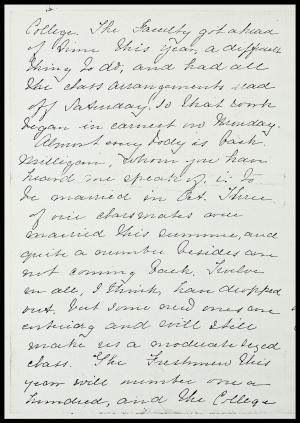 College. The Faculty got ahead
of time this year, a difficult
thing to do, and had all
the class arrangements read
off Saturday, so that work
began in earnest on Monday.
Almost every body is back.
Milligan, whom you have
heard me speak of, is to
be married in Oct. Three
of our classmates were
married this summer, and
quite a number besides are
not coming back. Twelve
in all, I think, have dropped
out, but some new ones are
entering and will still
make us a moderate sized
class. The Freshmen this
year will number one a
hundred, and the College